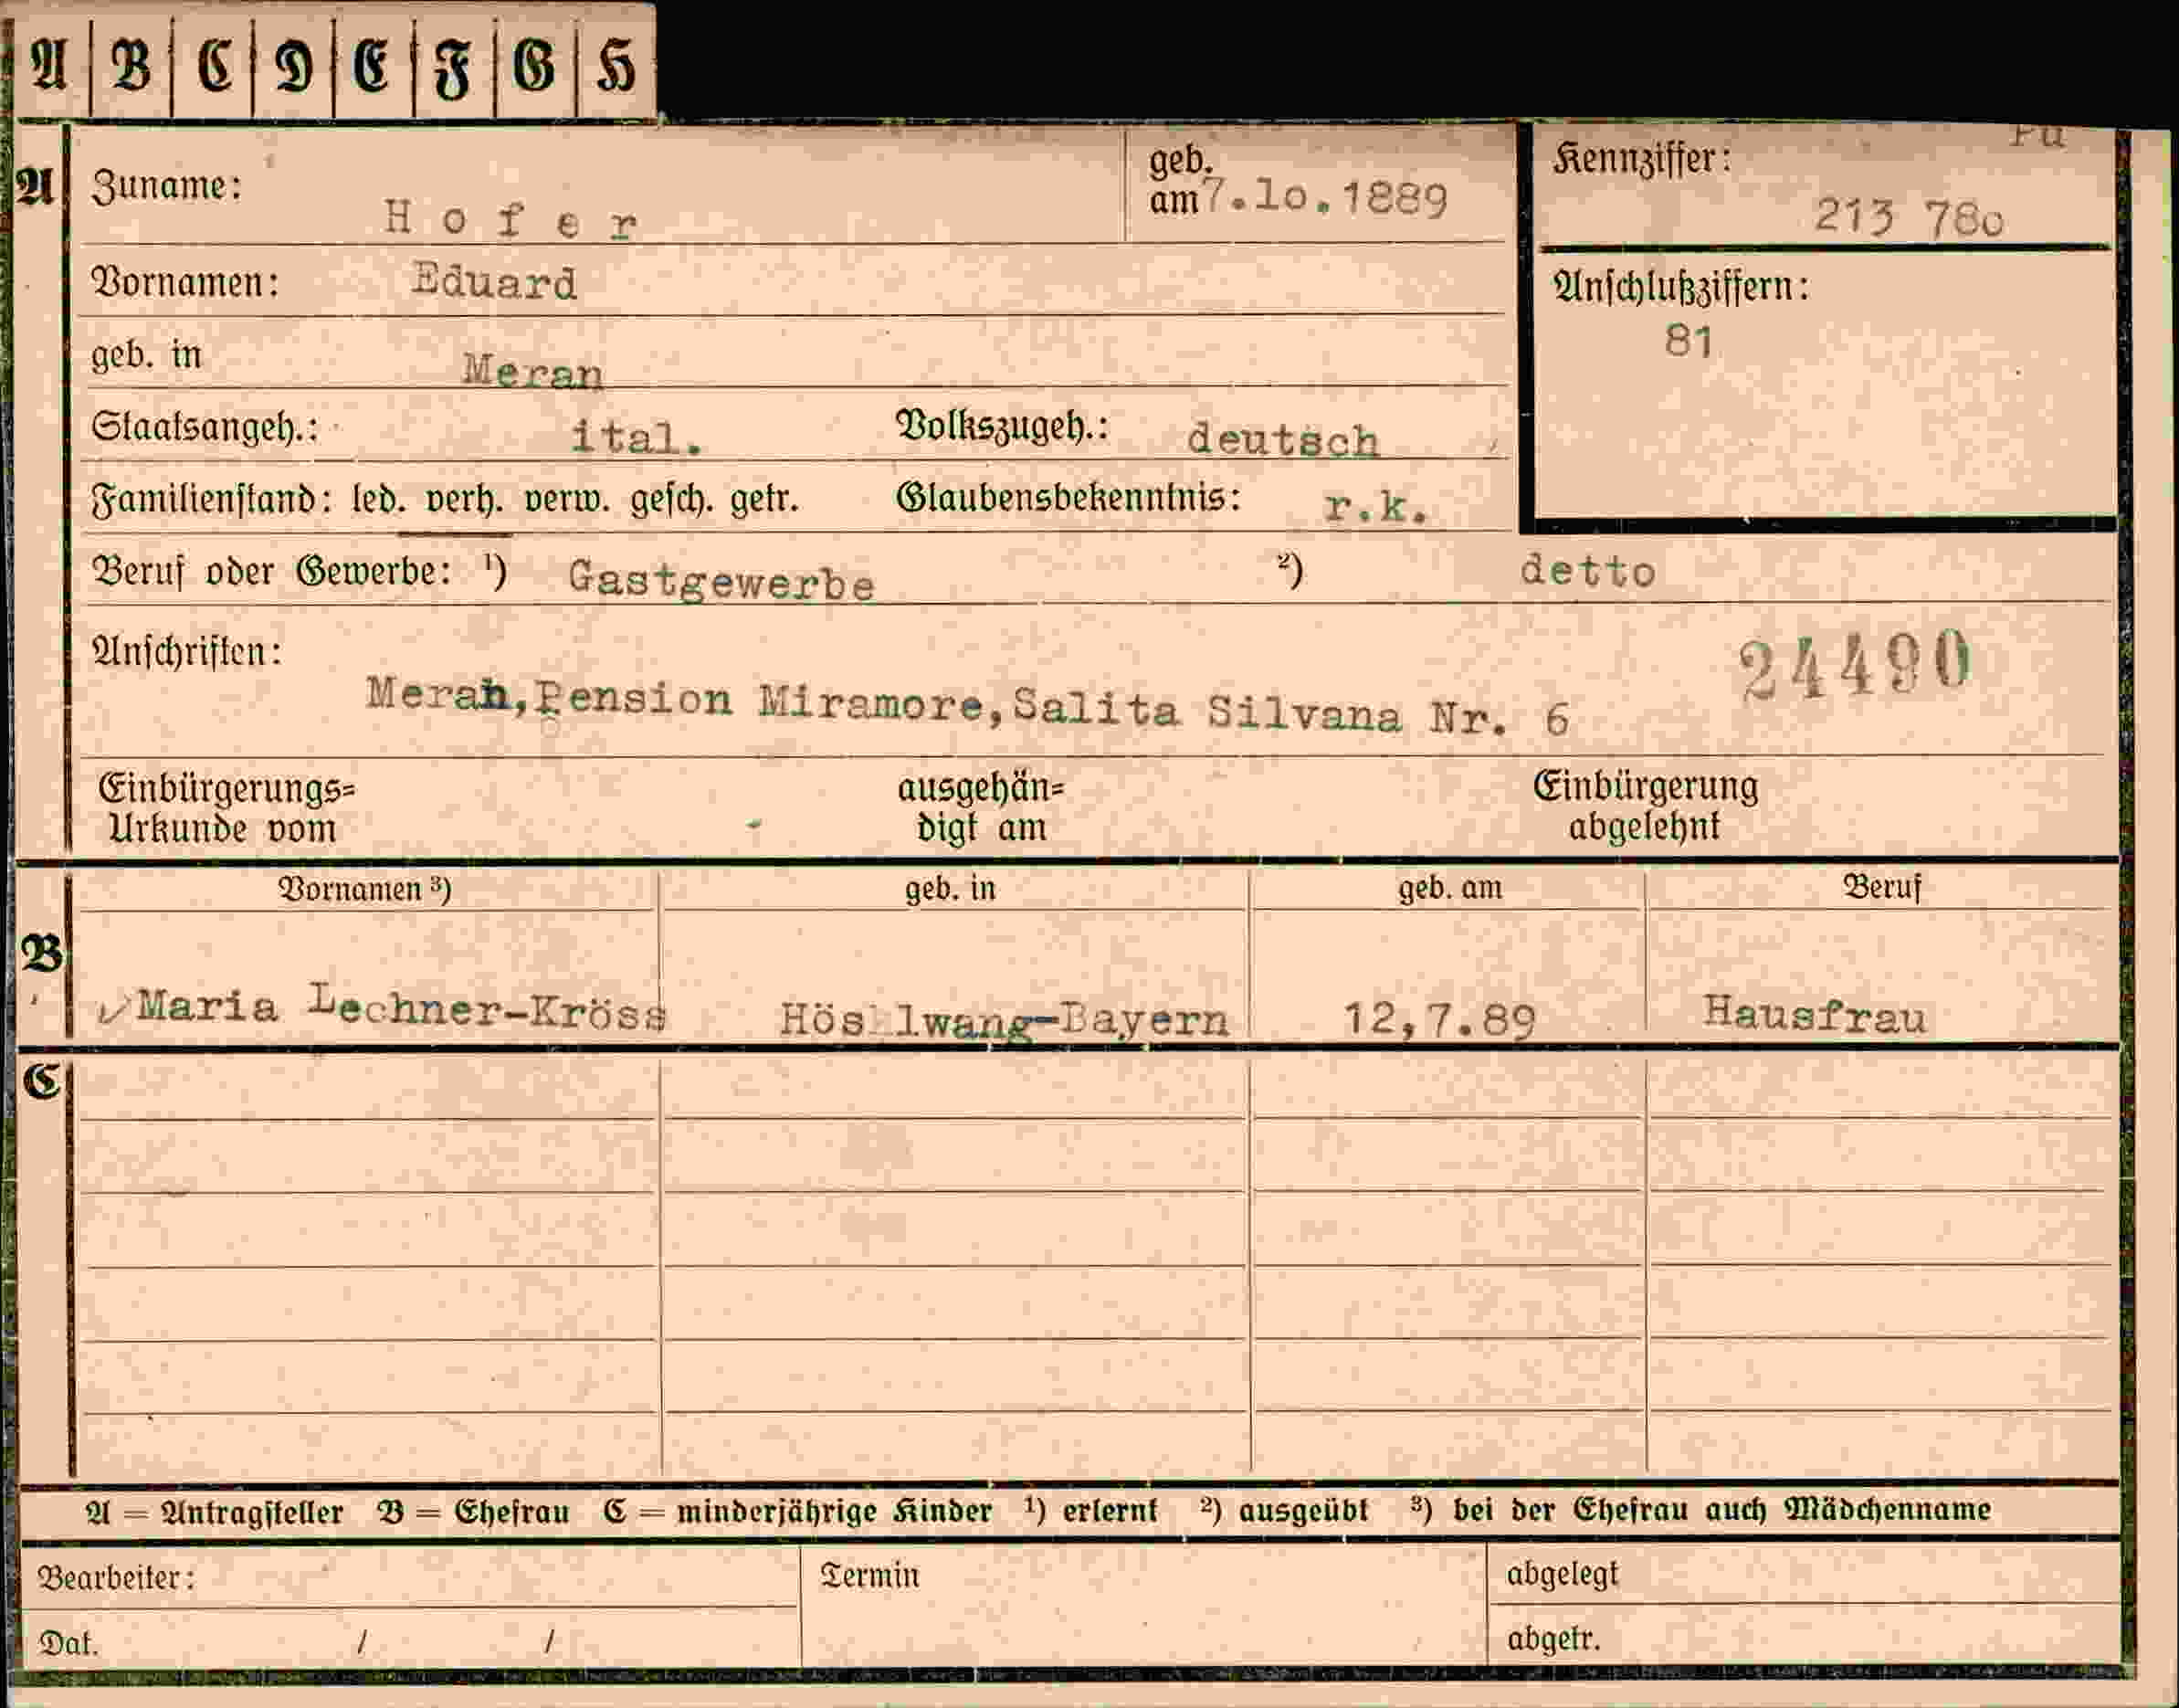 A B C D E F G H
Fü
A Zuname: Hofer geb. am 7.lo.1889 Kennziffer: 213 78o
Vornamen: Eduard Anschlußziffern: 81
geb. in Meran
Staatsangeh.: ital. Volkszugeh.: deutsch
Familienstand: led. verh. verw. gesch. getr. Glaubensbekenntnis: r.k.
Beruf oder Gewerbe: ¹) Gastgewerbe ²) detto
Anschriften: 24490
Meran,Pension Miramore,Salita Silvana Nr. 6
Einbürgerungs= ausgehän= Einbürgerung
Urkunde vom digt am abgelehnt
Vornamen ³) geb. in geb. am Beruf
B
Maria Lechner-Kröss Hös lwang-Bayern 12,7.89 Hausfrau
C
A = Antragsteller B = Ehefrau C = minderjährige Kinder ¹) erlernt ²) ausgeübt ³) bei der Ehefrau auch Mädchenname
Bearbeiter: Termin abgelegt
Dat. / / abgetr.